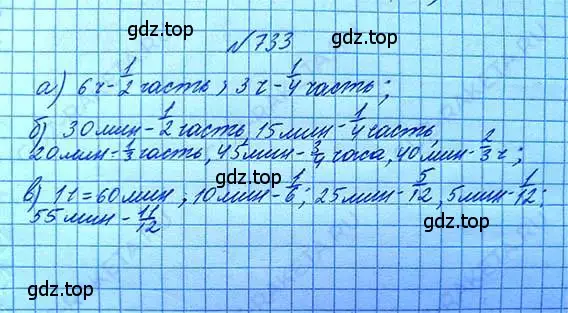 gdz.top
№733
gdz.top
gdz.top
а) 6ч - 1/2 часть; 3ч - 1/4 часть;
б) 30мин - 1/2 часть, 15мин - 1/4 часть,
20мин - 1/3 часть, 45мин - 3/4 часа, 40мин - 2/3 ч;
в) 1ч = 60мин; 10мин - 1/6; 25мин - 5/12, 5мин - 1/12;
55мин - 11/12
gdz.top
gdz.top
gdz.top